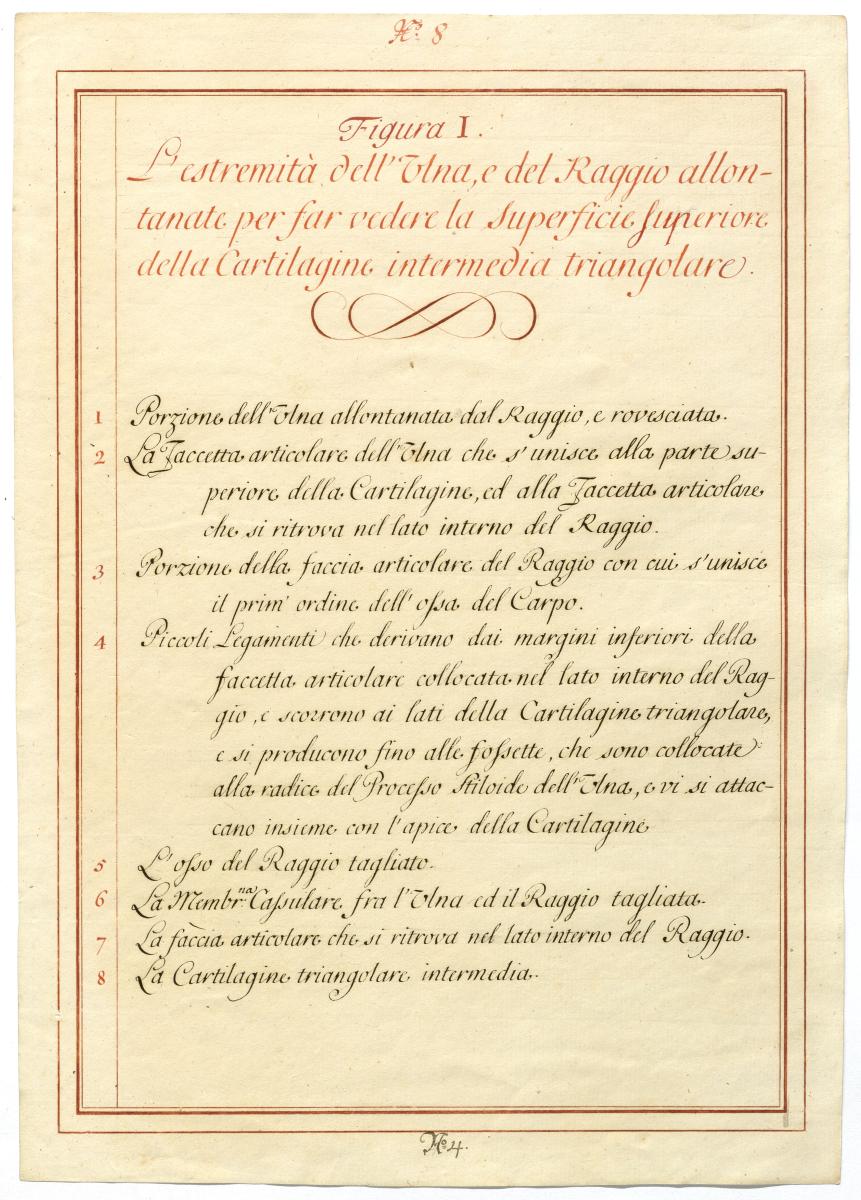 N.º 8
Figura I.
L'estremità dell'Ulna, e del Raggio allon-
tanate per far vedere la Superficie superiore
della Cartilagine intermedia triangolare.
1 Porzione dell'Ulna allontanata dal Raggio, e rovesciata.
2 La Faccetta articolare dell'Ulna che s'unisce alla parte su-
periore della Cartilagine, ed alla Faccetta articolare
che si ritrova nel lato interno del Raggio.
3 Porzione della faccia articolare del Raggio con cui s'unisce
il prim' ordine dell' ossa del Carpo.
4 Piccoli Legamenti che derivano dai margini inferiori della
faccetta articolare collocata nel lato interno del Rag-
gio, e scorrono ai lati della Cartilagine triangolare,
e si producono fino alle fossette, che sono collocate
alla radice del Processo Stiloide dell'Ulna, e vi si attac-
cano insieme con l'apice della Cartilagine
5 L'osso del Raggio tagliato.
6 La Membr.na Cassulare fra l'Ulna ed il Raggio tagliata.
7 La faccia articolare che si ritrova nel lato interno del Raggio.
8 La Cartilagine triangolare intermedia.
N.º 4.